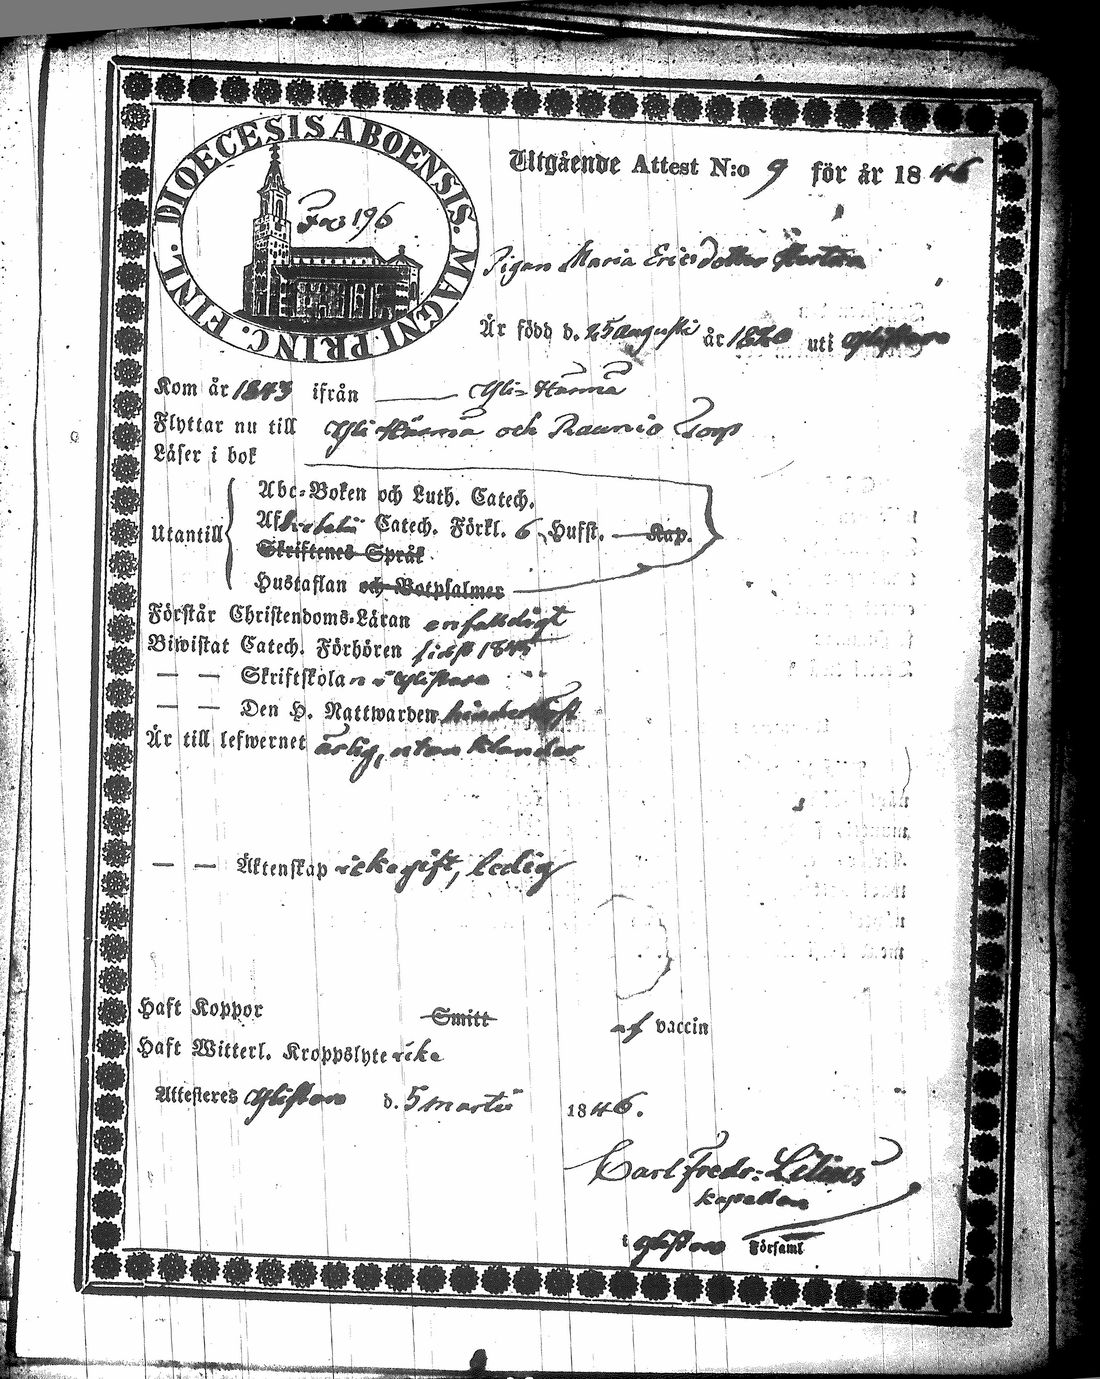 DIOECESIS ABOENSIS. MAGNI PRINC. FINL.
Fol 196
Utgående Attest N:o 9 för år 1846
Pigan Maria Ericsdotter
Är född d. 25 augusti år 1820 uti Ylistaro
Kom år 1843 ifrån Yli-Härmä
Flyttar nu till Yli Härmä och Raunio Torp
Läser i bok
Utantill
Abc-Boken och Luth. Catech.
Catech. Förkl. 6 Hufst. Kap.
Skriftenes Språk
Hustaflan och Botpsalmer
Förstår Christendoms-Läran enfaldigt
Biwistat Catech. Förhören sidst 1845
— — Skriftskolan i Ylistaro
— — Den H. Nattwarden
Är till lefwernet ärlig, utan klander
— — Äktenskap icke gift, ledig
Haft Koppor Smitt af vaccin
Haft Witterl. Kroppslyte icke
Attesteres Ylistaro d. 5 martii 1846.
Carl Fredr: Lilius
kapellan
i Ylistaro Församl